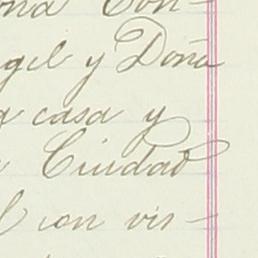 ona Con-
gel y Doña
a casa y
Ciudad
l con vis-